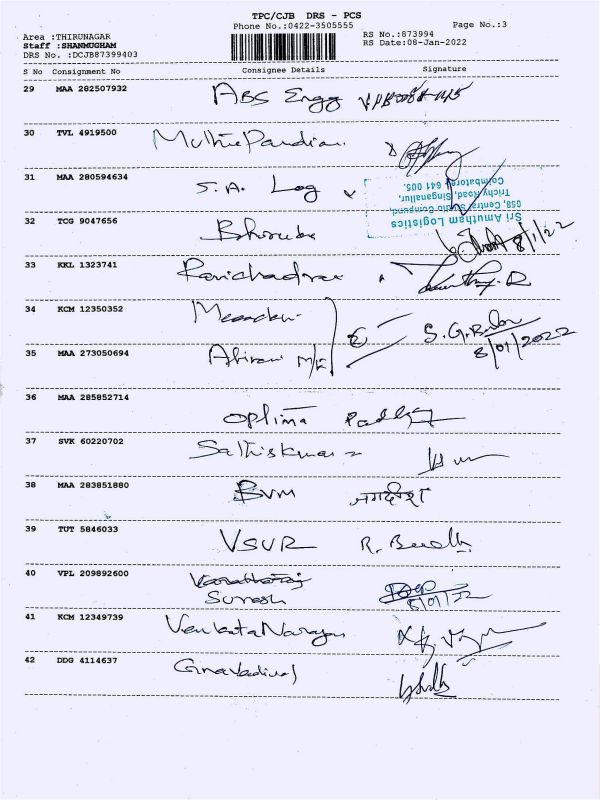 TPC/CJB DRS - PCS
Phone No.:0422-3505555
Page No.:3
Area :THIRUNAGAR
Staff :SHANMUGHAM
DRS No. :DCJB87399403
RS No.:873994
RS Date:08-Jan-2022
S No Consignment No Consignee Details Signature
29 MAA 282507932 ABS Engg
30 TVL 4919500 MuthuPandian
31 MAA 280594634 S.A. Log
Sri Amutham Logistics
Trichy Road, Singanallur,
Coimbatore - 641 005.
32 TCG 9047656 8/1/22
33 KKL 1323741
34 KCM 12350352 S.G.Babu
8/01/2022
35 MAA 273050694 Abirami
36 MAA 285852714 Optima
37 SVK 60220702 Sathiskumar
38 MAA 283851880 BVM जगदीश
39 TUT 5846033 VSVR R.
40 VPL 209892600
Suresh 8/01/22
41 KCM 12349739 VenkataNarayan
42 DDG 4114637